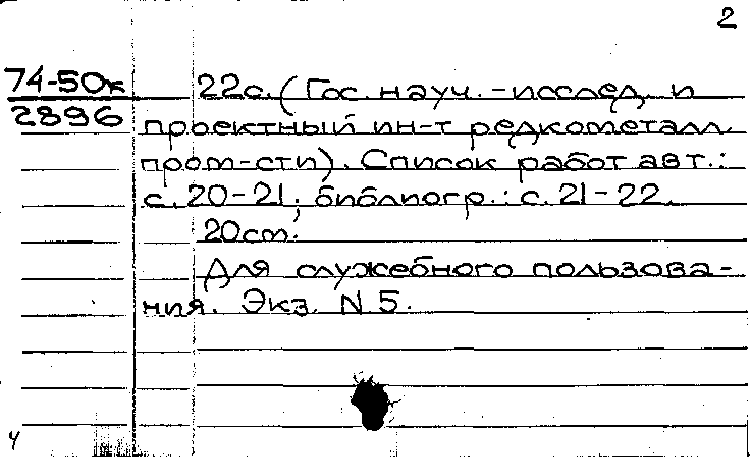 2
74-50к 22с. (Гос. науч.-исслед. и
2896 проектный ин-т редкометалл.
пром-сти). Список работ авт.:
с. 20-21; библиогр.: с. 21-22.
20 см.
Для служебного пользова-
ния. Экз. N 5.
ч